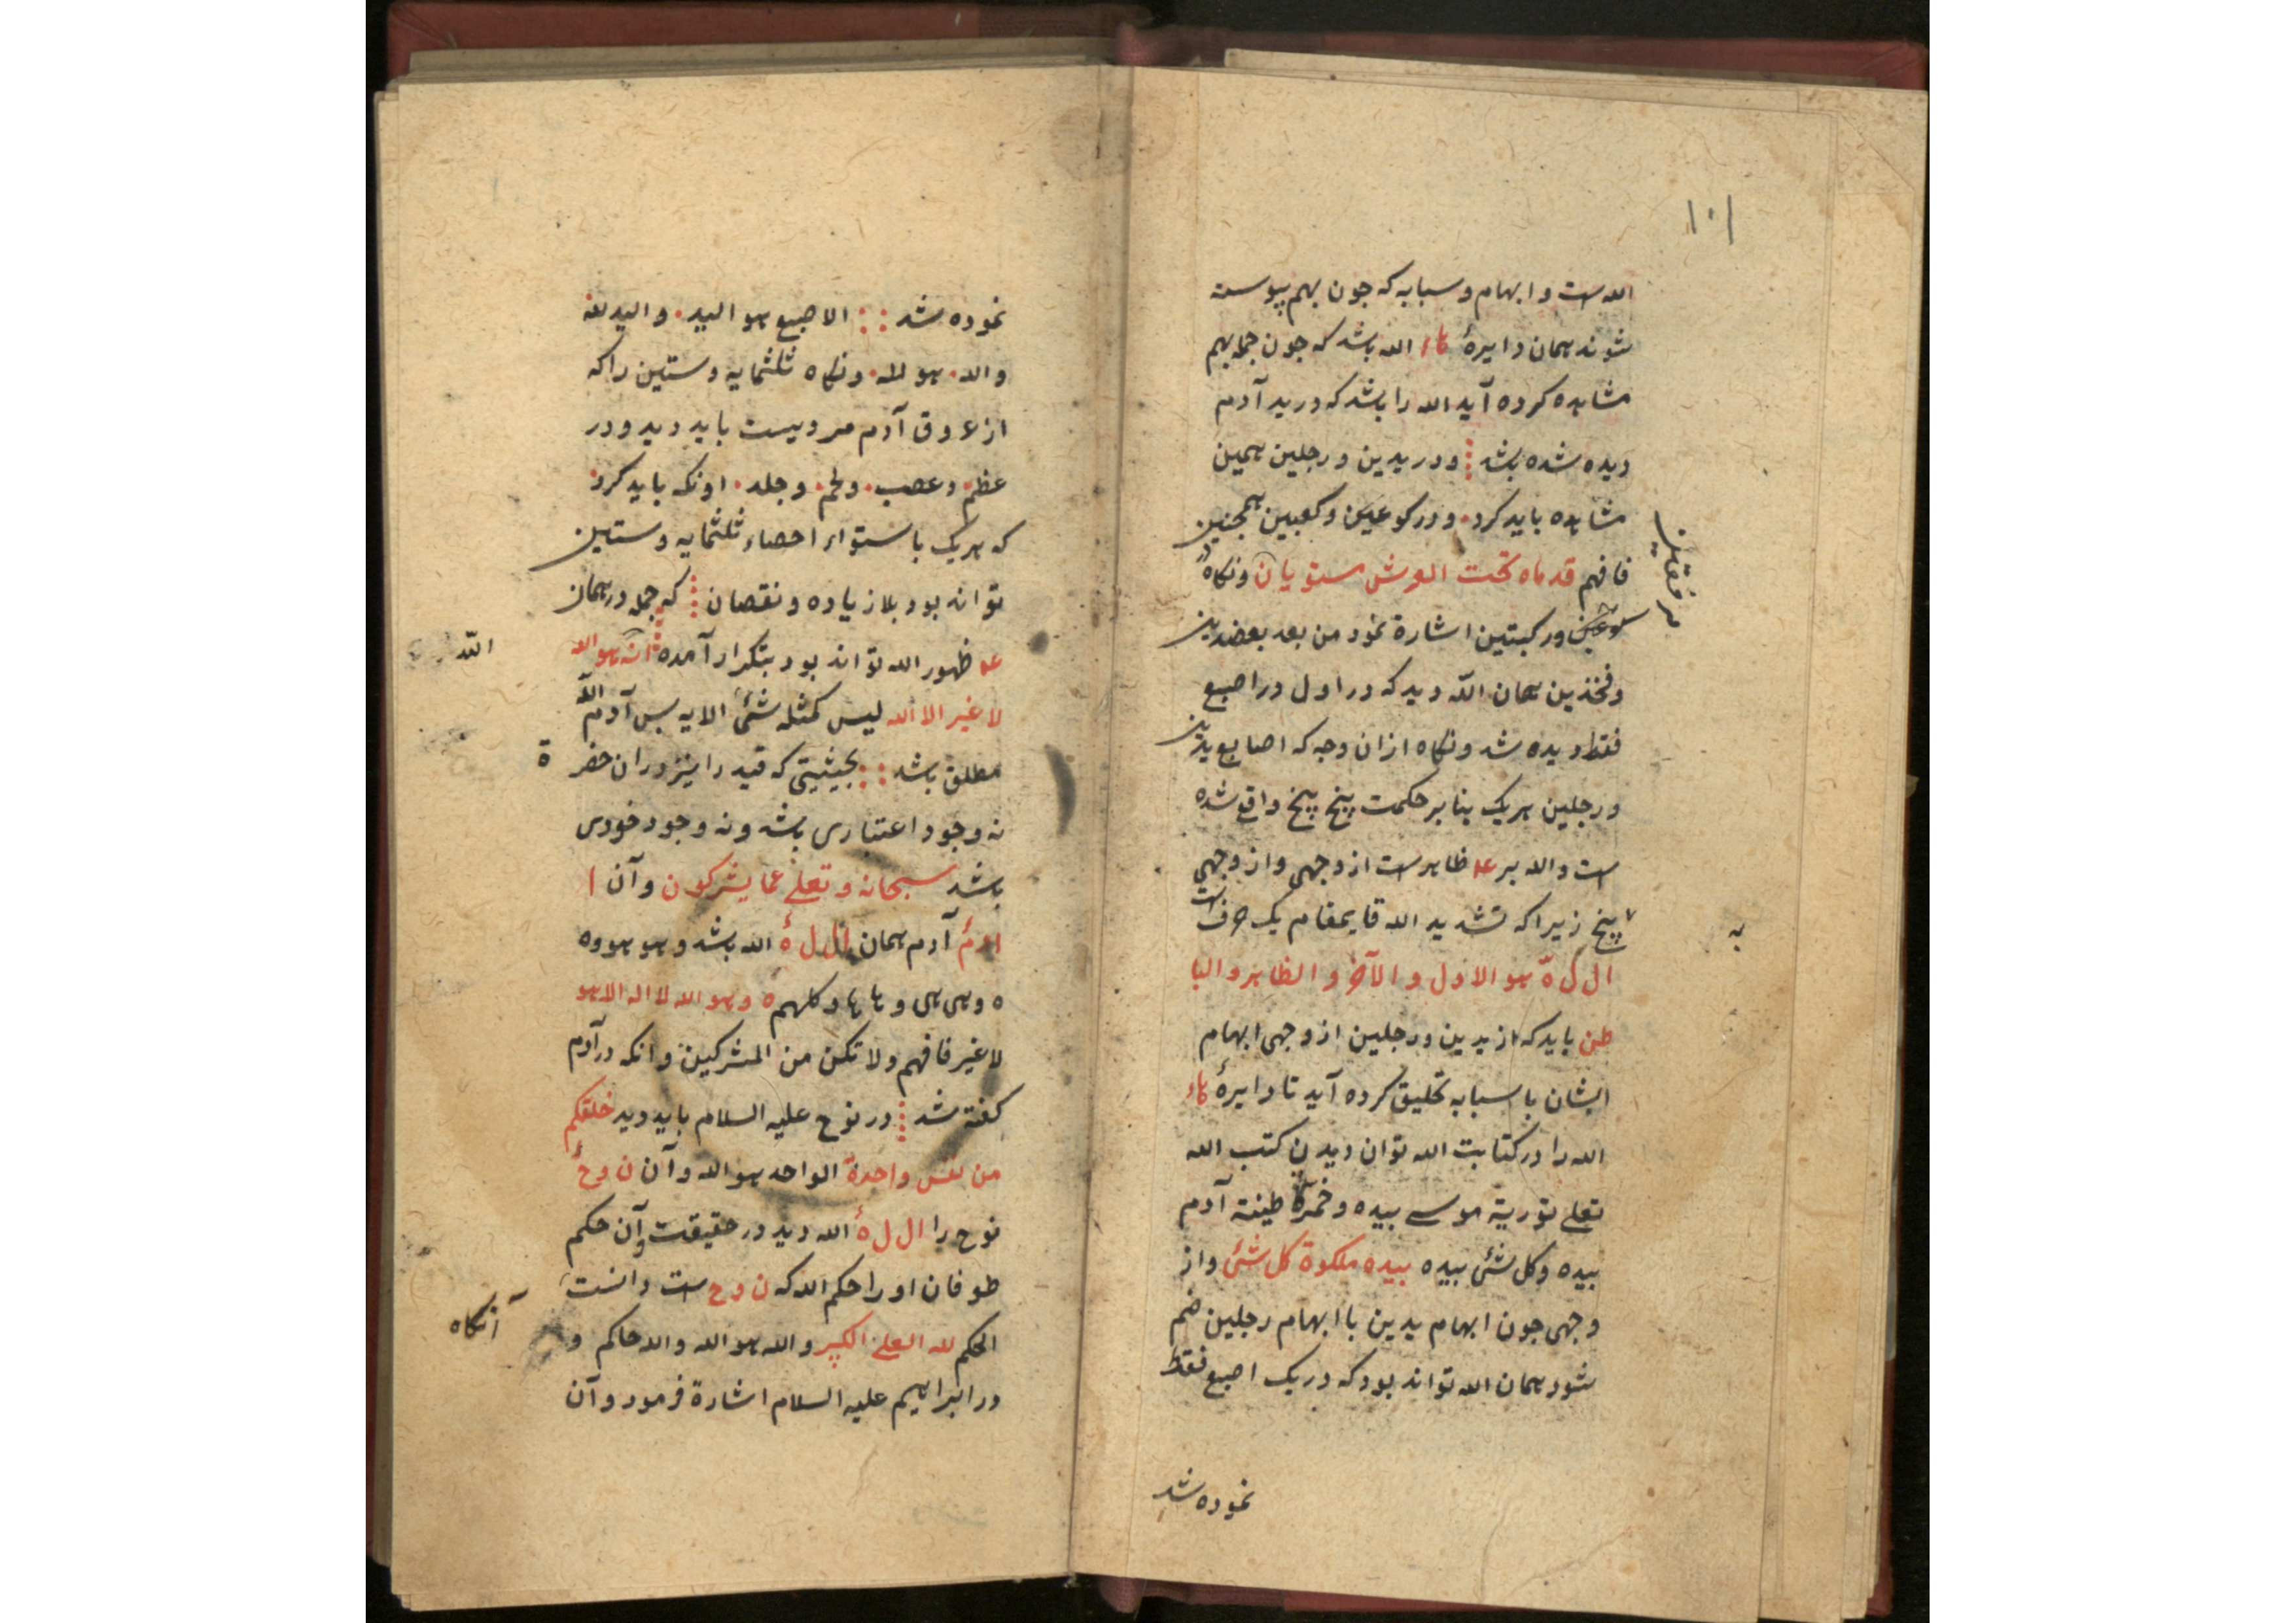 ١٠١
الله است و ابهام و سبابه که جون بهم پیوسته
شوند همان دایرهٔ هاء الله باشد که جون جمله بهم
مشاهده کرده آید الله را باشد که در ید آدم
دیده شده باشد و در یدین و رجلین همین
مشاهده باید کرد و در کوعین و کعبین همجنین
فافهم قدماه تحت العرش مستویان ونکاه در
مرفقین
و رکبتین اشارة نمود من بعد بعضدین
و فخذین همان اللّه دید که در اول در اصبع
فقط دیده شد ونکاه ازان وجه که اصابع یدین
و رجلین هریک بنابر حکمت پنج پنج واقع شده
است و الله بر ظاهر است از وجهی و از وجهی
به
پنج زیرا که تشدید الله قایمقام یک حرف است
ال ل ه هو الاول و الآخر و الظاهر و البا
طن باید که از یدین و رجلین از وجهی ابهام
ایشان با سبابه تحلیق کرده آید تا دایرهٔ هاء
الله را در کتابت الله توان دیدن کتب الله
تعلی توریة موسی بیده و خمرة طینة آدم
بیده و کل شئ بیده بیده ملکوة کل شئ و از
وجهی جون ابهام یدین با ابهام رجلین ضم
شود همان الله تواند بود که در یک اصبع فقط
نموده شد
نموده شد الاصبع هو الید و الید لله
و الله هو لله ونکاه ثلثمایه و ستین را که
از عروق آدم مرویست باید دید و در
عظم و عصب و لحم و جلد او نکه باید کرد
که هریک باستواء احصاء ثلثمایه و ستین
تواند بود بلا زیاده و نقصان که جمله در همان
ظهور الله تواند بود بتکرار آمده انه هو الله
اللّه
لا غیر الا الله لیس کمثله شئ الایه بس آدم اللّه
مطلق باشد بحیثیتی که قید را نیز دران حضر
ة
نه وجود اعتباری باشد و نه وجود خودی
باشد سبحانه و تعلی عما یشرکون و آن ا
ادم آدم همان ال ل ه الله باشد و هو هو وه
ه و هی هی و ها ها و کلهم ه و هو الله لا اله الا هو
لا غیر فافهم و لا تکن من المشرکین و انکه در آدم
کفته شد در نوح علیه السلام باید دید خلقکم
من نفس واحدة الواحد هو الله و آن ن و ح
نوح را ال ل ه الله دید در حقیقت و آن حکم
طوفان او را حکم الله که ن و ح است دانست
الحکم لله العلی الکبیر و الله هو الله و الله حاکم و
آنکاه
در ابراهیم علیه السلام اشارة فرمود و آن